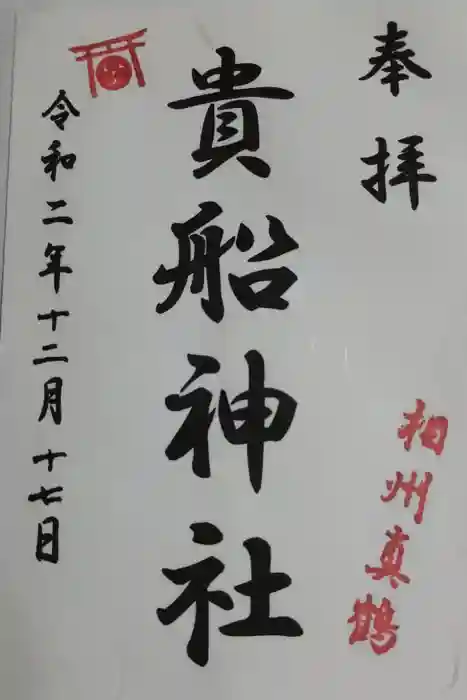 奉拝
相州真鶴
貴船神社
令和二年十二月十七日